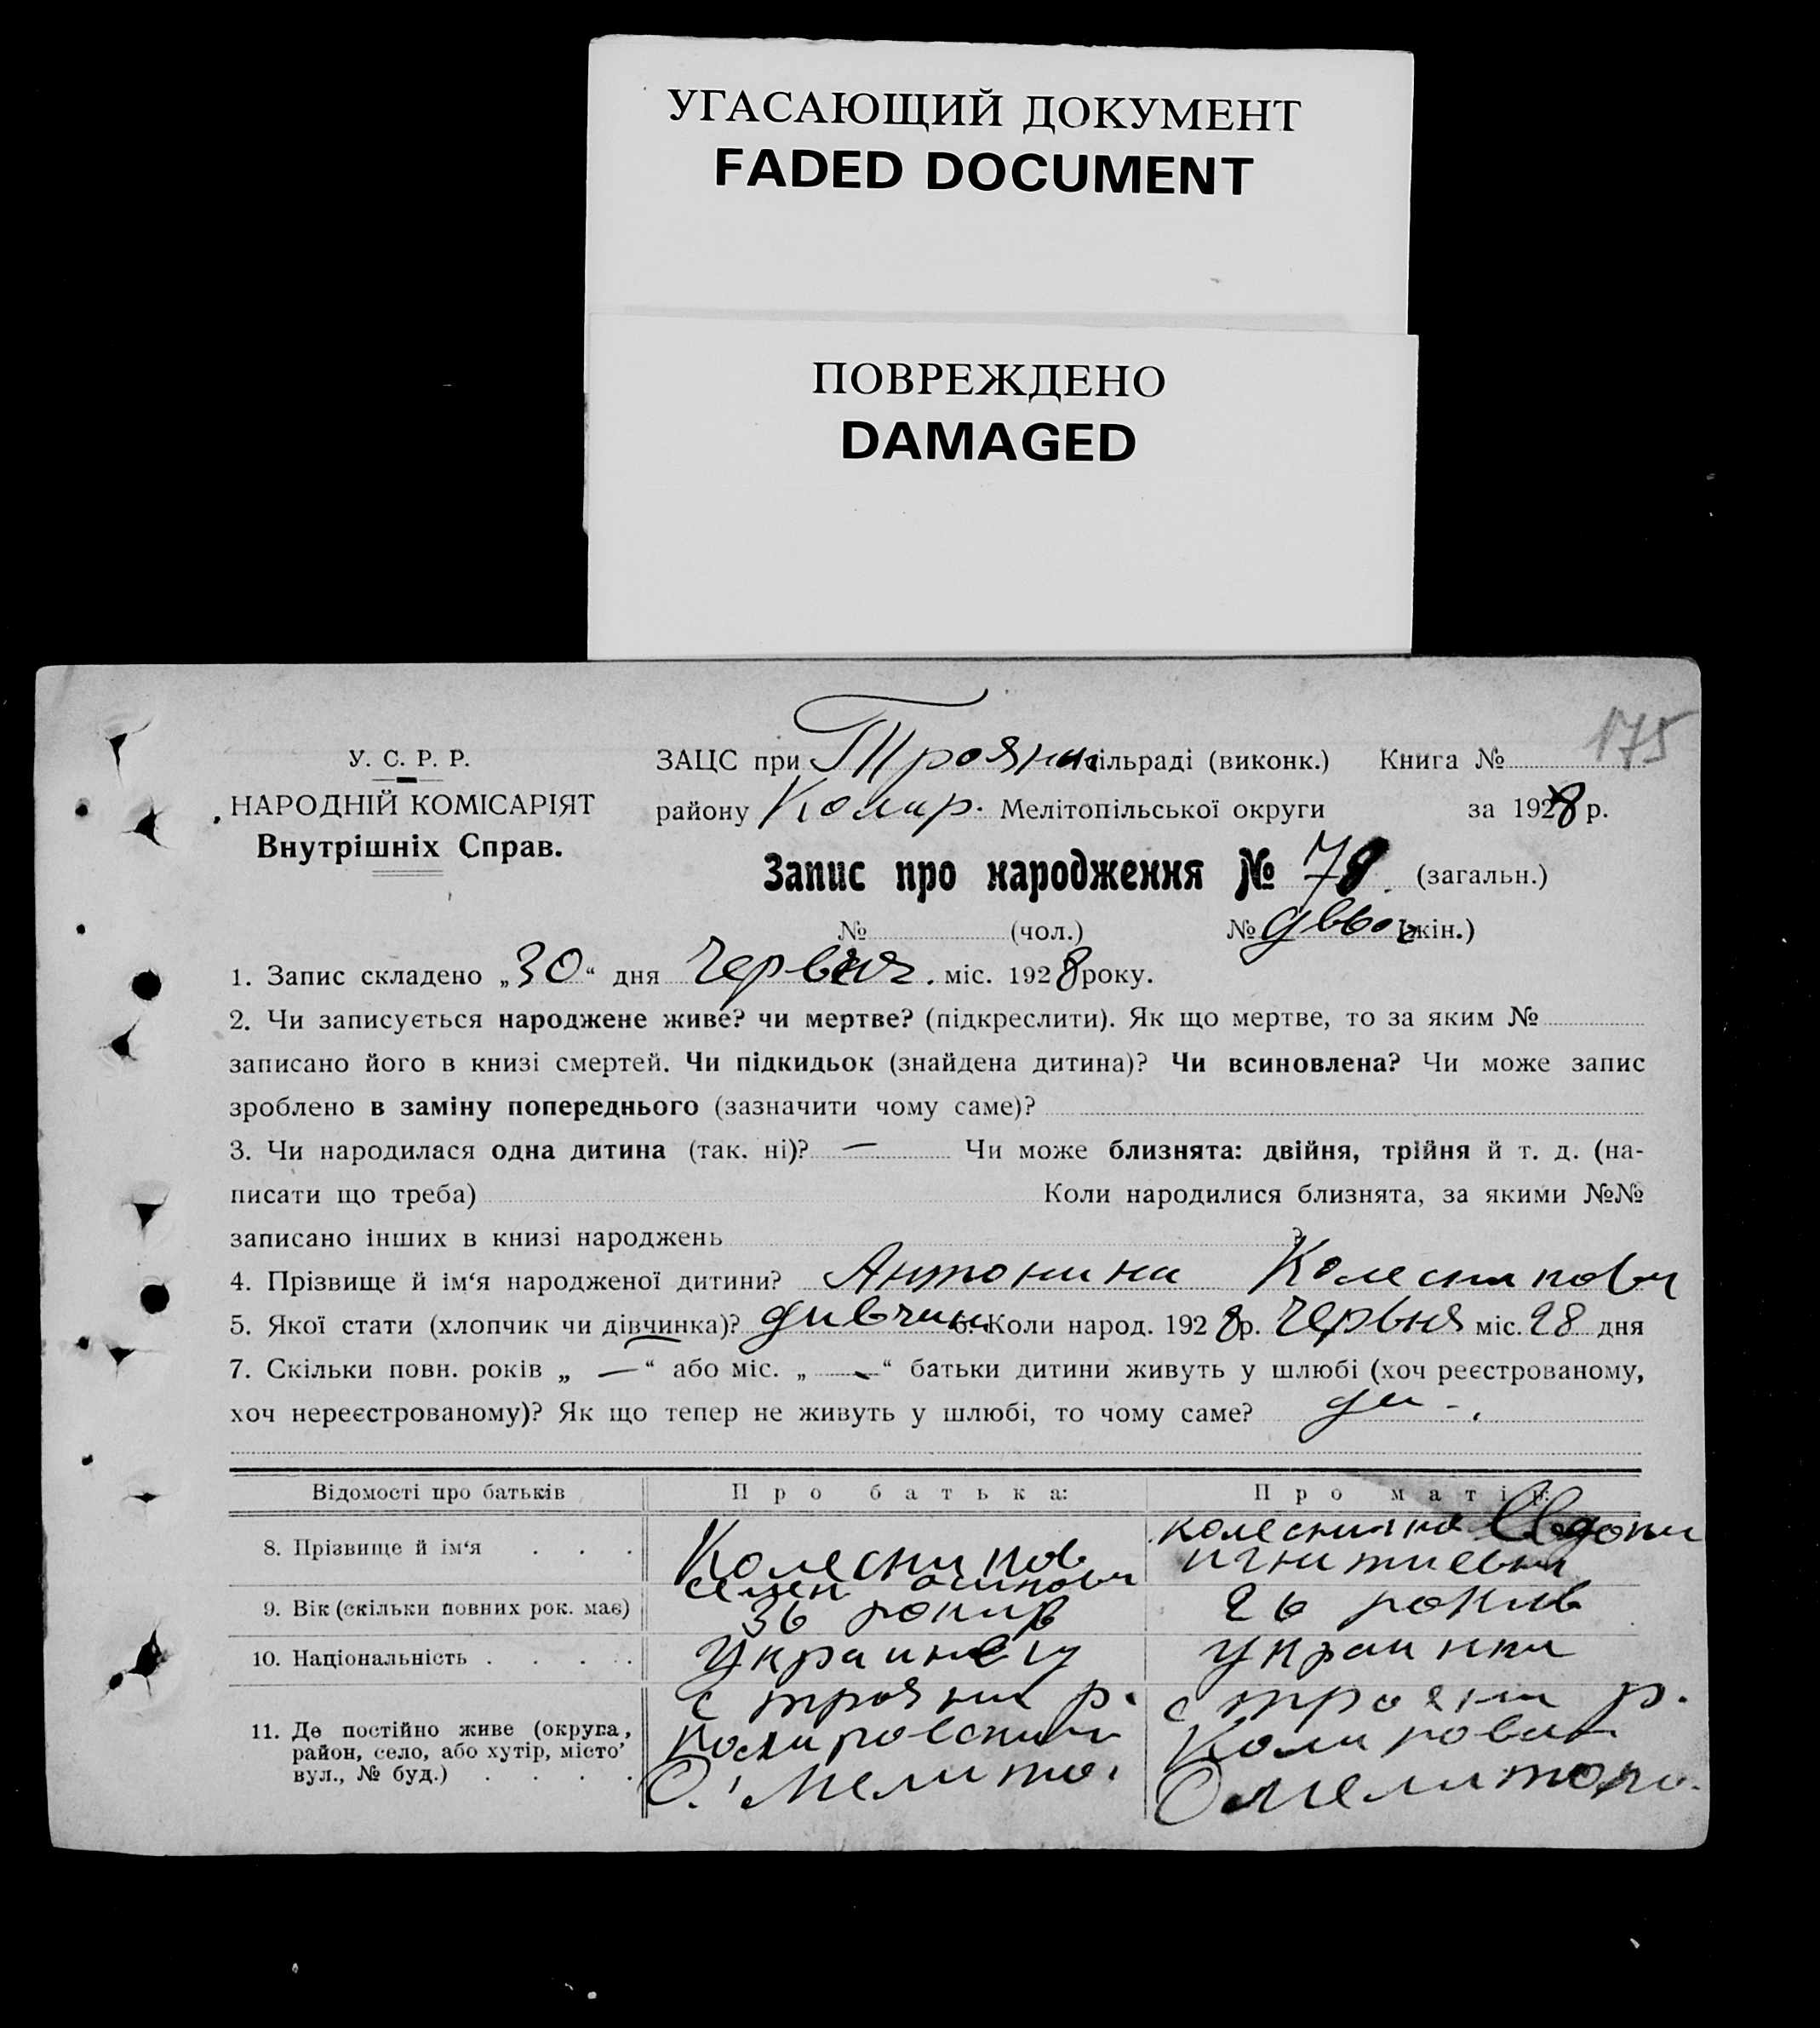 УГАСАЮЩИЙ ДОКУМЕНТ
FADED DOCUMENT
ПОВРЕЖДЕНО
DAMAGED
175
У. С. Р. Р.
НАРОДНІЙ КОМІСАРІЯТ
Внутрішніх Справ.
ЗАЦС при Трояни сільраді (виконк.) Книга №
району Комир. Мелітопільської округи за 1928 р.
Запис про народження № 78. (загальн.)
№ (чол.) № (жін.)
1. Запис складено „30“ дня Червня. міс. 1928 року.
2. Чи записується народжене живе? чи мертве? (підкреслити). Як що мертве, то за яким №
записано його в книзі смертей. Чи підкидьок (знайдена дитина)? Чи всиновлена? Чи може запис
зроблено в заміну попереднього (зазначити чому саме)?
3. Чи народилася одна дитина (так. ні)? — Чи може близнята: двійня, трійня й т. д. (на-
писати що треба) Коли народилися близнята, за якими №№
записано інших в книзі народжень ?
4. Прізвище й ім‘я народженої дитини? Антонина Колесникова
5. Якої стати (хлопчик чи дівчинка)? дивчина 6. Коли народ. 1928 р. Червня міс. 28 дня
7. Скільки повн. років „ — “ або міс. „ — “ батьки дитини живуть у шлюбі (хоч реєстрованому,
хоч нереєстрованому)? Як що тепер не живуть у шлюбі, то чому саме? да -.
Відомості про батьків Про батька: Про матір:
8. Прізвище й ім‘я . . . Колесников
семен колесникова Евдоки
игнатиевна
9. Вік (скільки повних рок. має) 36 рокив 26 рокив
10. Національність . . . . украинец украинка
11. Де постійно живе (округа,
район, село, або хутір, місто’
вул., № буд.) . . . .
с трояни р.
О. Мелито.
с трояни р.
О мелитопо.